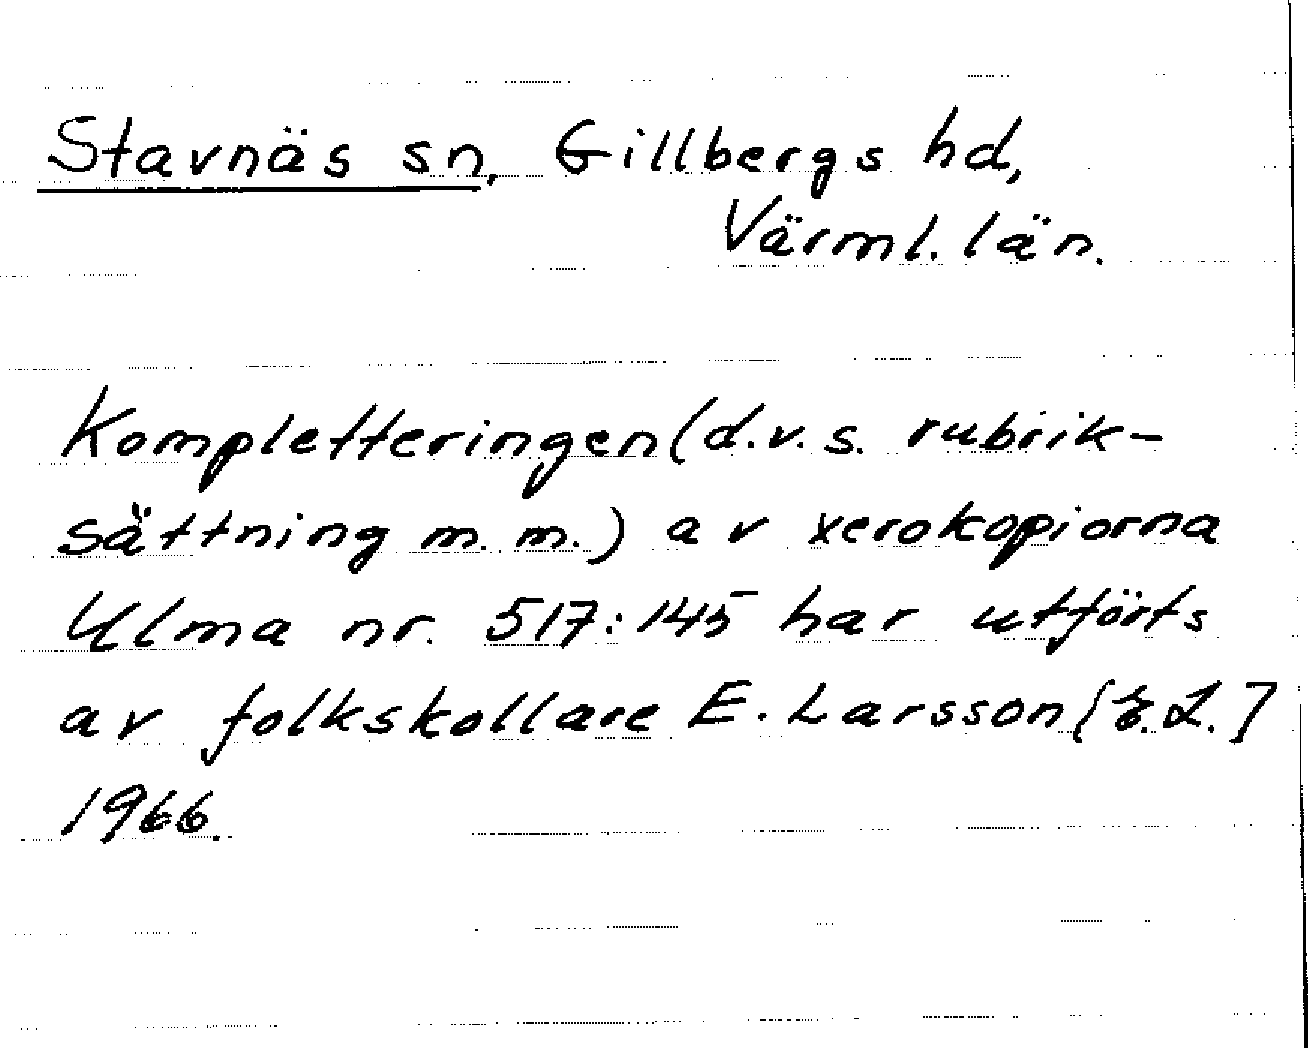 Stavnäs sn, Gillbergs hd,
Värml. län.
Kompletteringen (d.v.s. rubrik-
sättning m. m.) av xerokopiorna
Ulma nr. 517:145 har utförts
av folkskollare E. Larsson [E.L.]
1966.